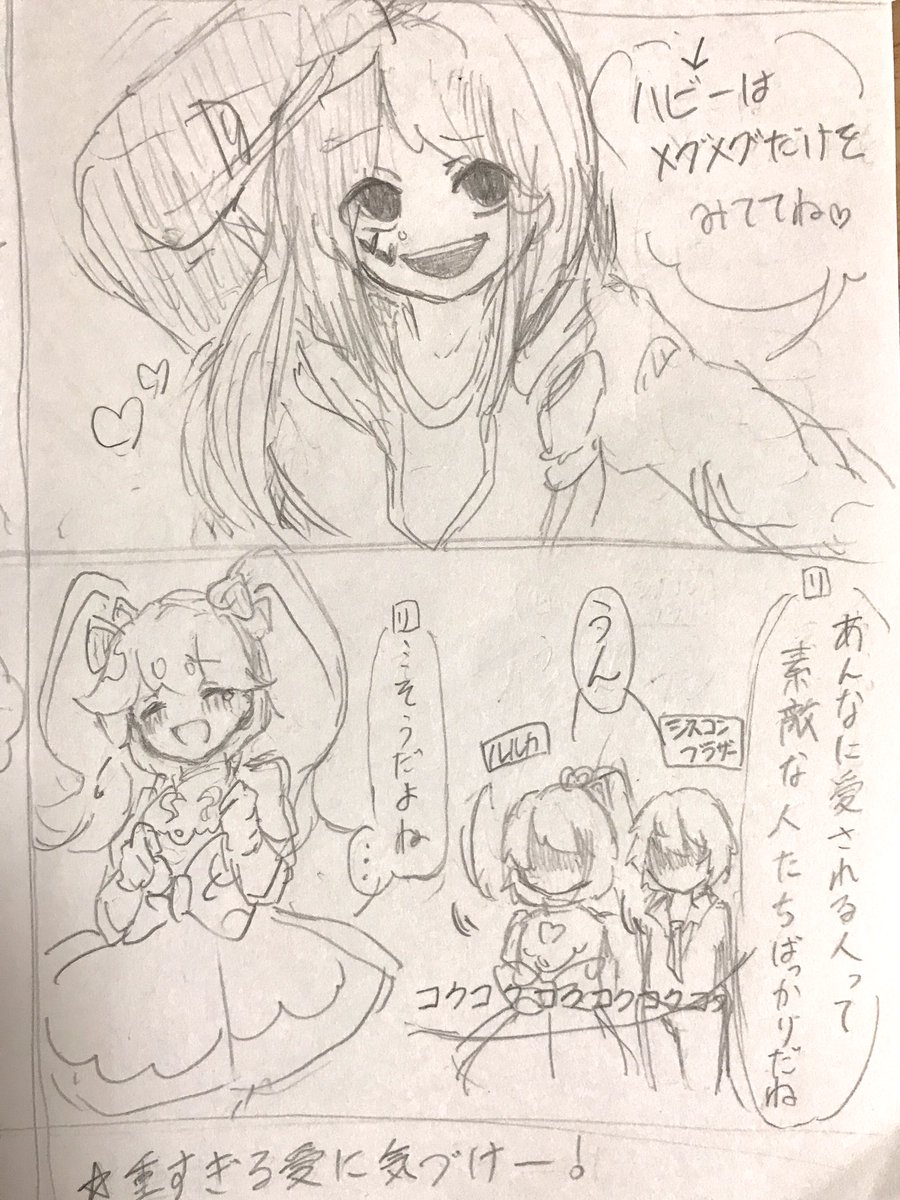 ↓
ハビーは
メグメグだけを
みててね♡
リ
あんなに愛される人って
素敵な人たちばっかりだね
うん
シスコン
ブラザー
ルルカ
リ
そうだよね
…
コクコクコクコクコクコク
☆重すぎる愛に気づけー！